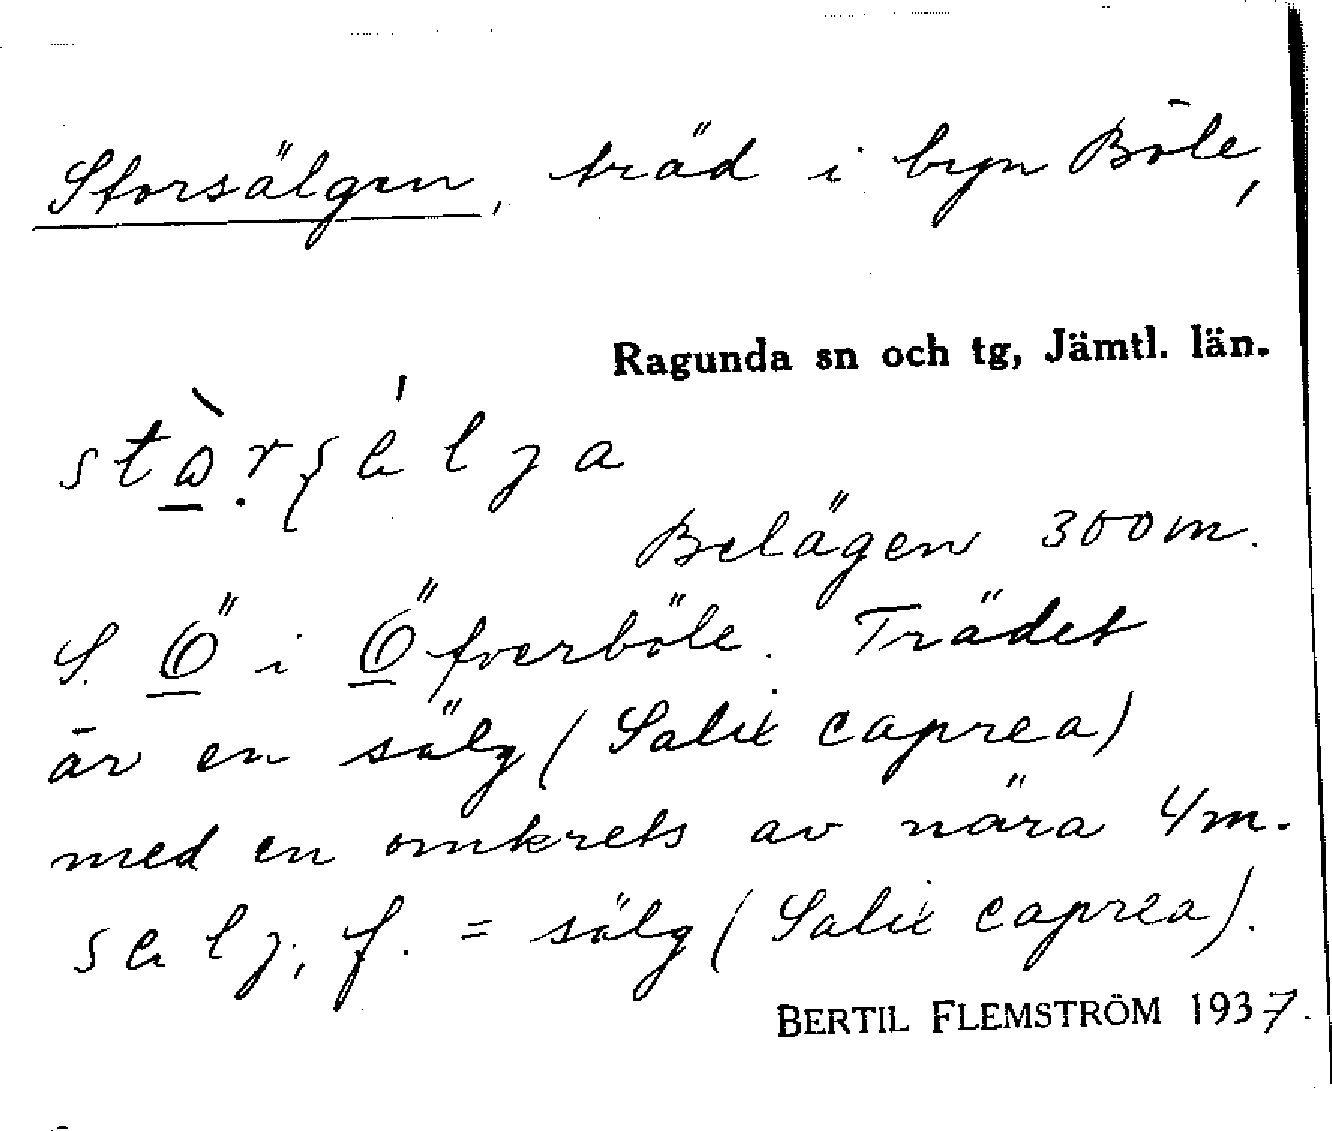 Storsälgen, träd i byn Böle,
Ragunda sn och tg, Jämtl. län.
Belägen 300 m.
S. Ö i Öfverböle. Trädet
är en sälg (Salix caprea)
med en omkrets av nära 4 m.
f. = sälg (Salix caprea).
BERTIL FLEMSTRÖM 1937.